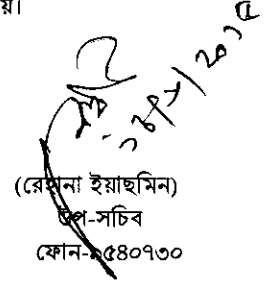 য়।
(রেহানা ইয়াছমিন)
উপ-সচিব
ফোন-৯৫৪০৭৩০